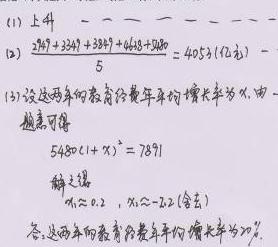 (1) 上升
(2) (2949+3349+3849+4638+5480)/5 = 4053(亿元)
(3) 设这两年的教育经费年平均增长率为x,由
题意可得
5480(1+x)² = 7891
解之得
x₁≈0.2 , x₂≈-2.2(舍去)
答:这两年的教育经费年平均增长率为20%.